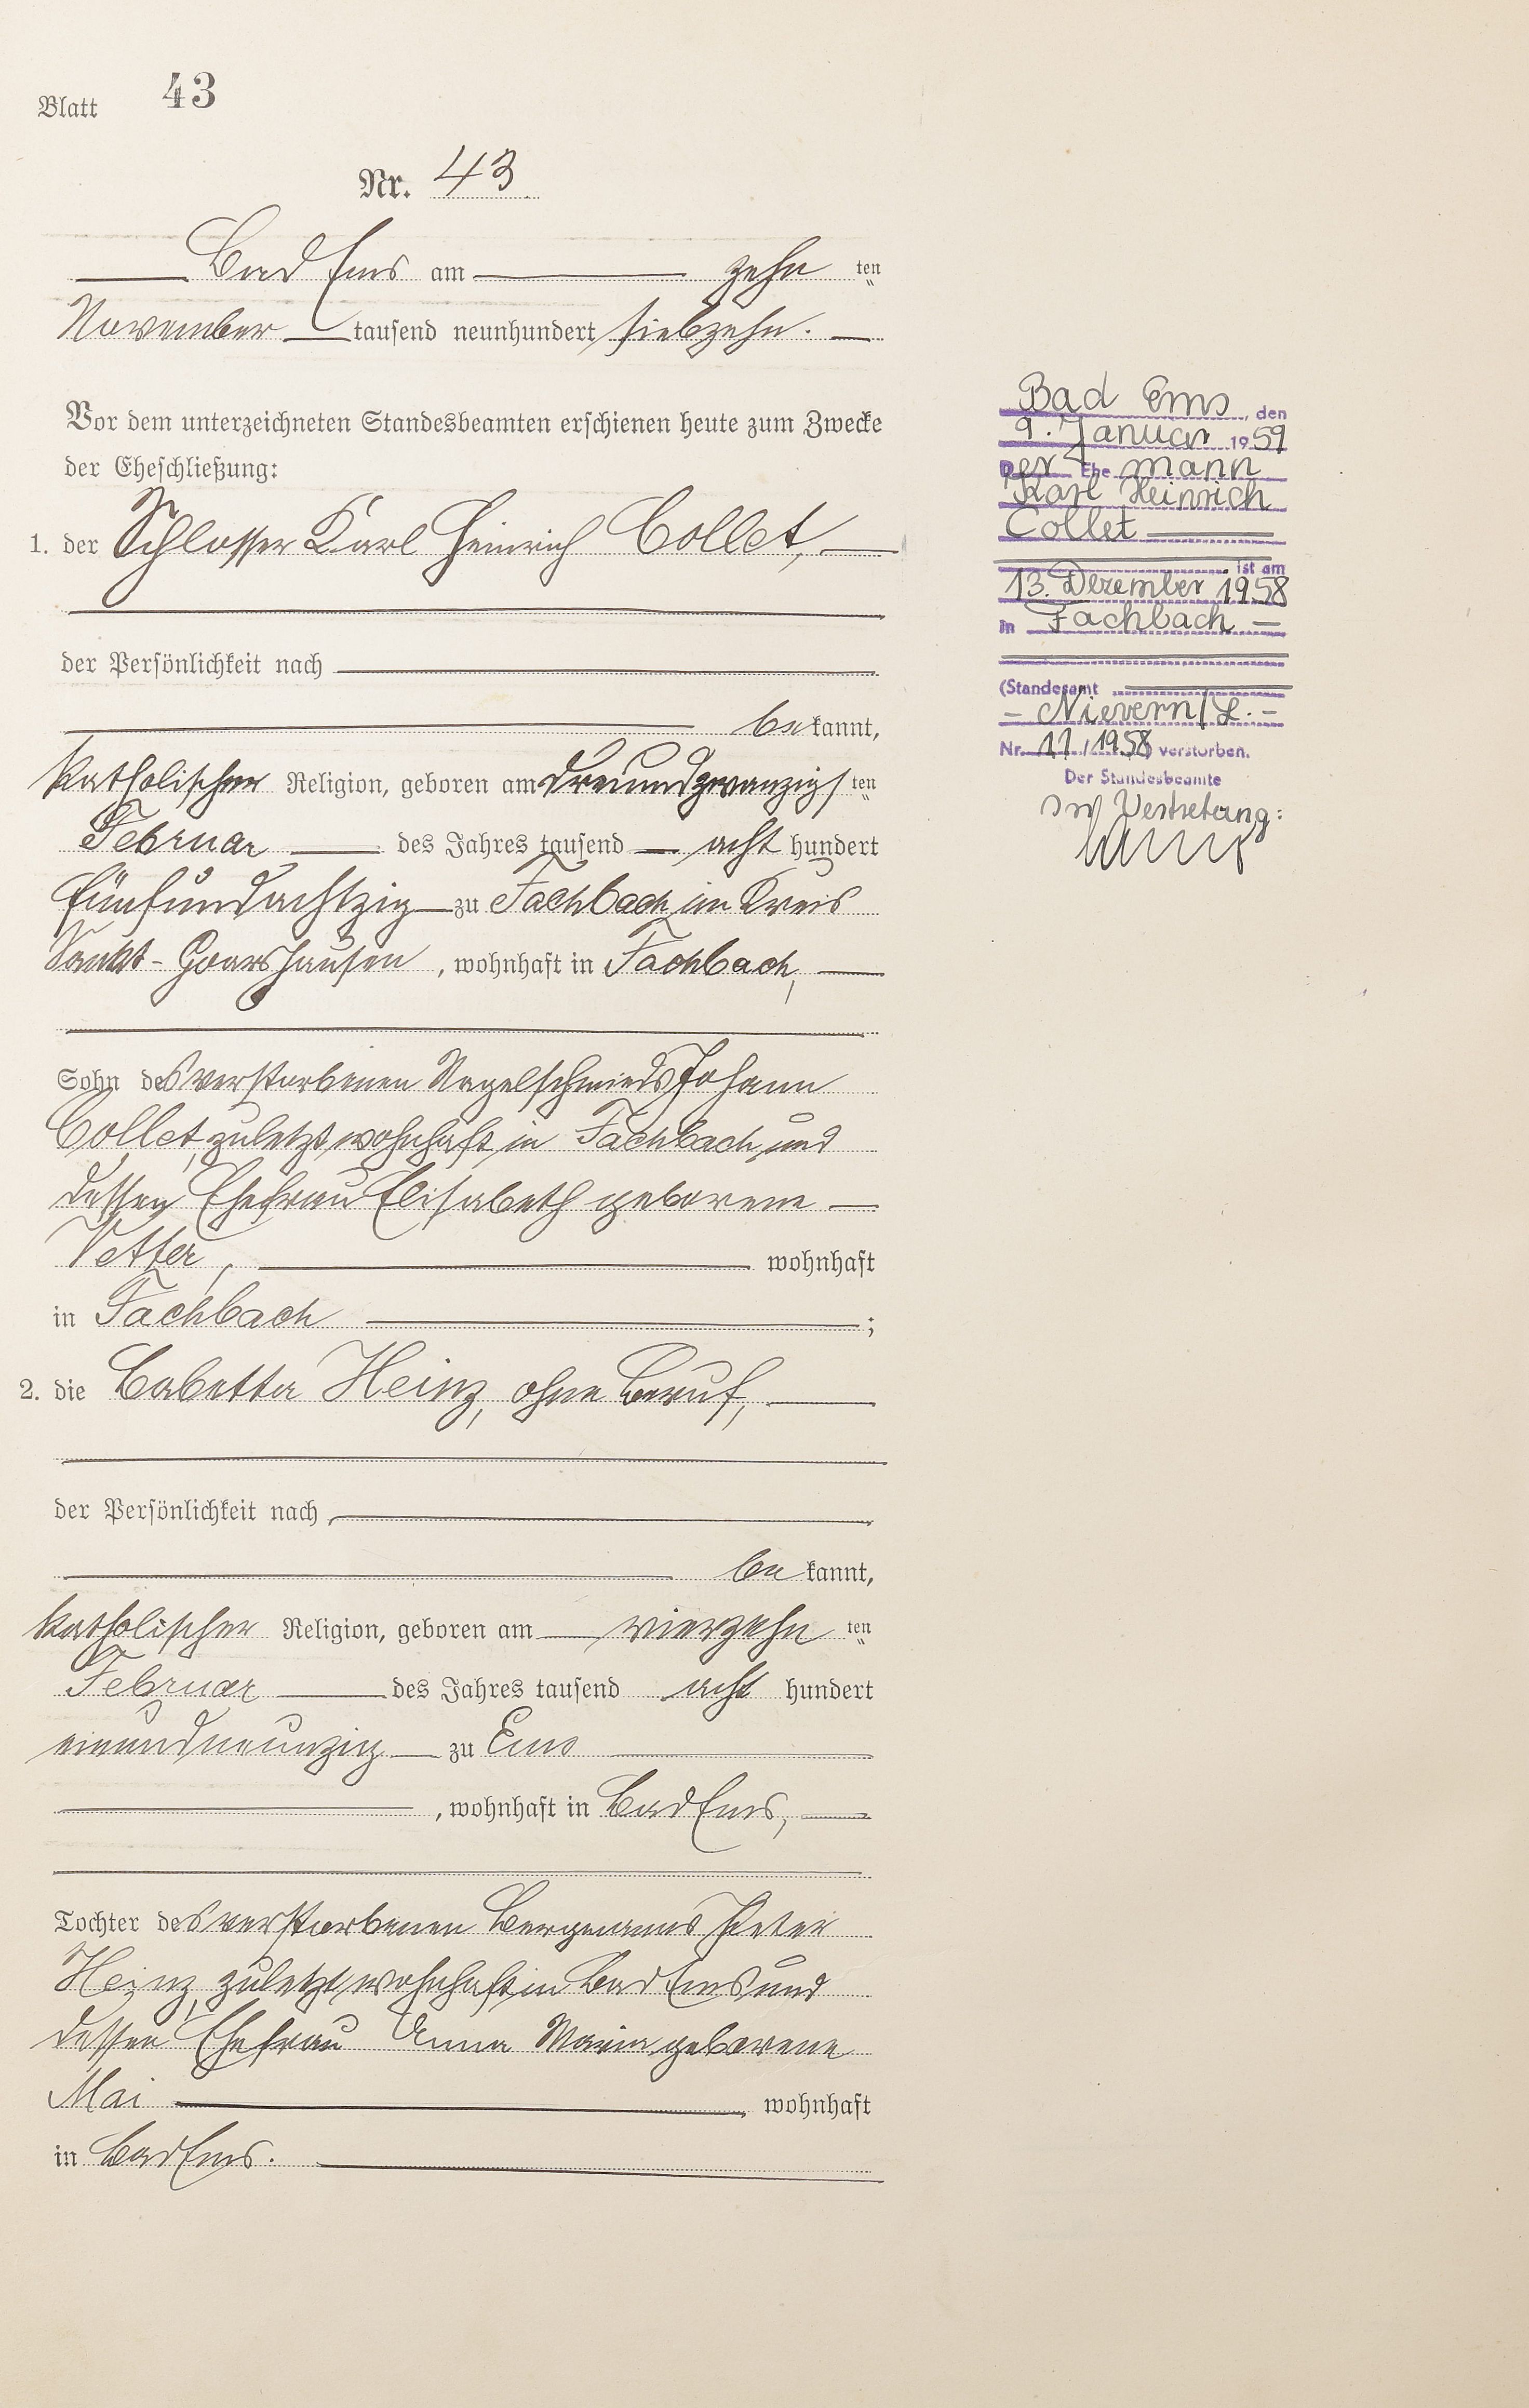 Blatt 43
Nr. 43
Bad Ems am zehn ten
November tausend neunhundert siebzehn.
Vor dem unterzeichneten Standesbeamten erschienen heute zum Zwecke
der Eheschließung:
1. der Schlosser Karl Heinrich Collet,
der Persönlichkeit nach
be kannt,
katholischer Religion, geboren am dreiundzwanzigs ten
Februar des Jahres tausend acht hundert
fünfundachtzig zu Fachbach im Kreis
Sankt-Goarshausen, wohnhaft in Fachbach,
Sohn des verstorbenen Nagelschmieds Johann
Collet, zuletzt wohnhaft in Fachbach, und
dessen Ehefrau Elisabeth geborene
Vetter, wohnhaft
in Fachbach ;
2. die Babetta Heinz, ohne Beruf,
der Persönlichkeit nach
be kannt,
katholischer Religion, geboren am vierzehn ten
Februar des Jahres tausend acht hundert
einundneunzig zu Ems
, wohnhaft in Bad Ems,
Tochter des verstorbenen Bergmanns Peter
Heinz, zuletzt wohnhaft in Bad Ems und
dessen Ehefrau Anna Maria geborene
Mai wohnhaft
in Bad Ems.
Bad Ems, den
9. Januar 1959
Der Ehe mann
Karl Heinrich
Collet
ist am
13. Dezember 1958
in Fachbach
(Standesamt
- Nievern/L. -
Nr. 11/1958 verstorben.
Der Standesbeamte
In Vertretung: